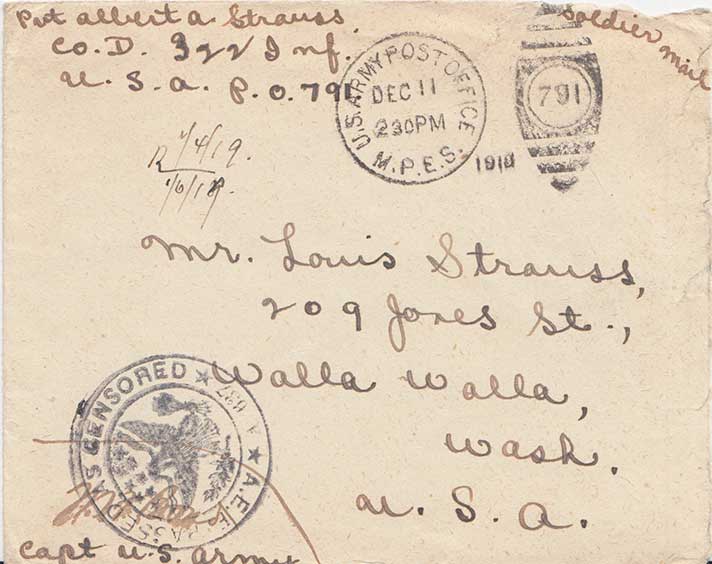 Pvt Albert A Strauss.
Co. D. 322 Inf.
U. S. A. P.O. 791
Soldier Mail
U.S. ARMY POST OFFICE
DEC 11
230PM
M.P.E.S.
1918
791
R 1/4/19.
1/6/19.
Mr. Louis Strauss,
209 Jones St.,
Walla Walla,
Wash.
U. S. A.
PASSED AS CENSORED
A.E.F.
Capt U.S. Army